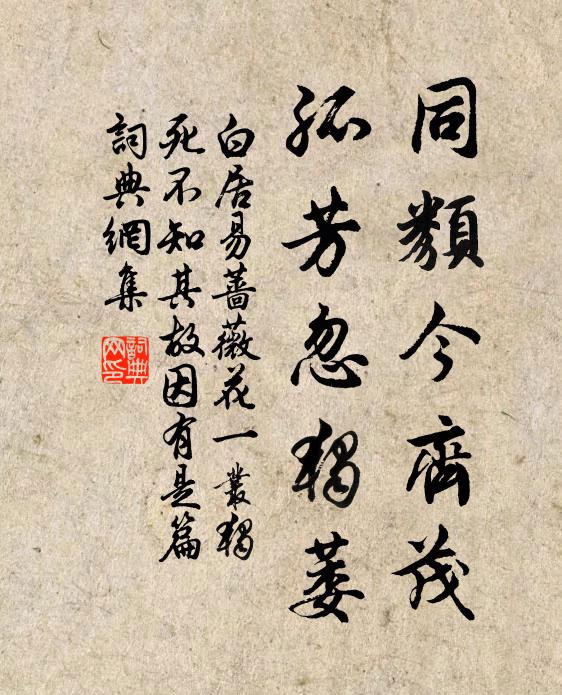 同類今齊茂
孤芳忽獨萎
白居易薔薇花一叢獨
死不知其故因有是篇
詞典網集
詞典
网印